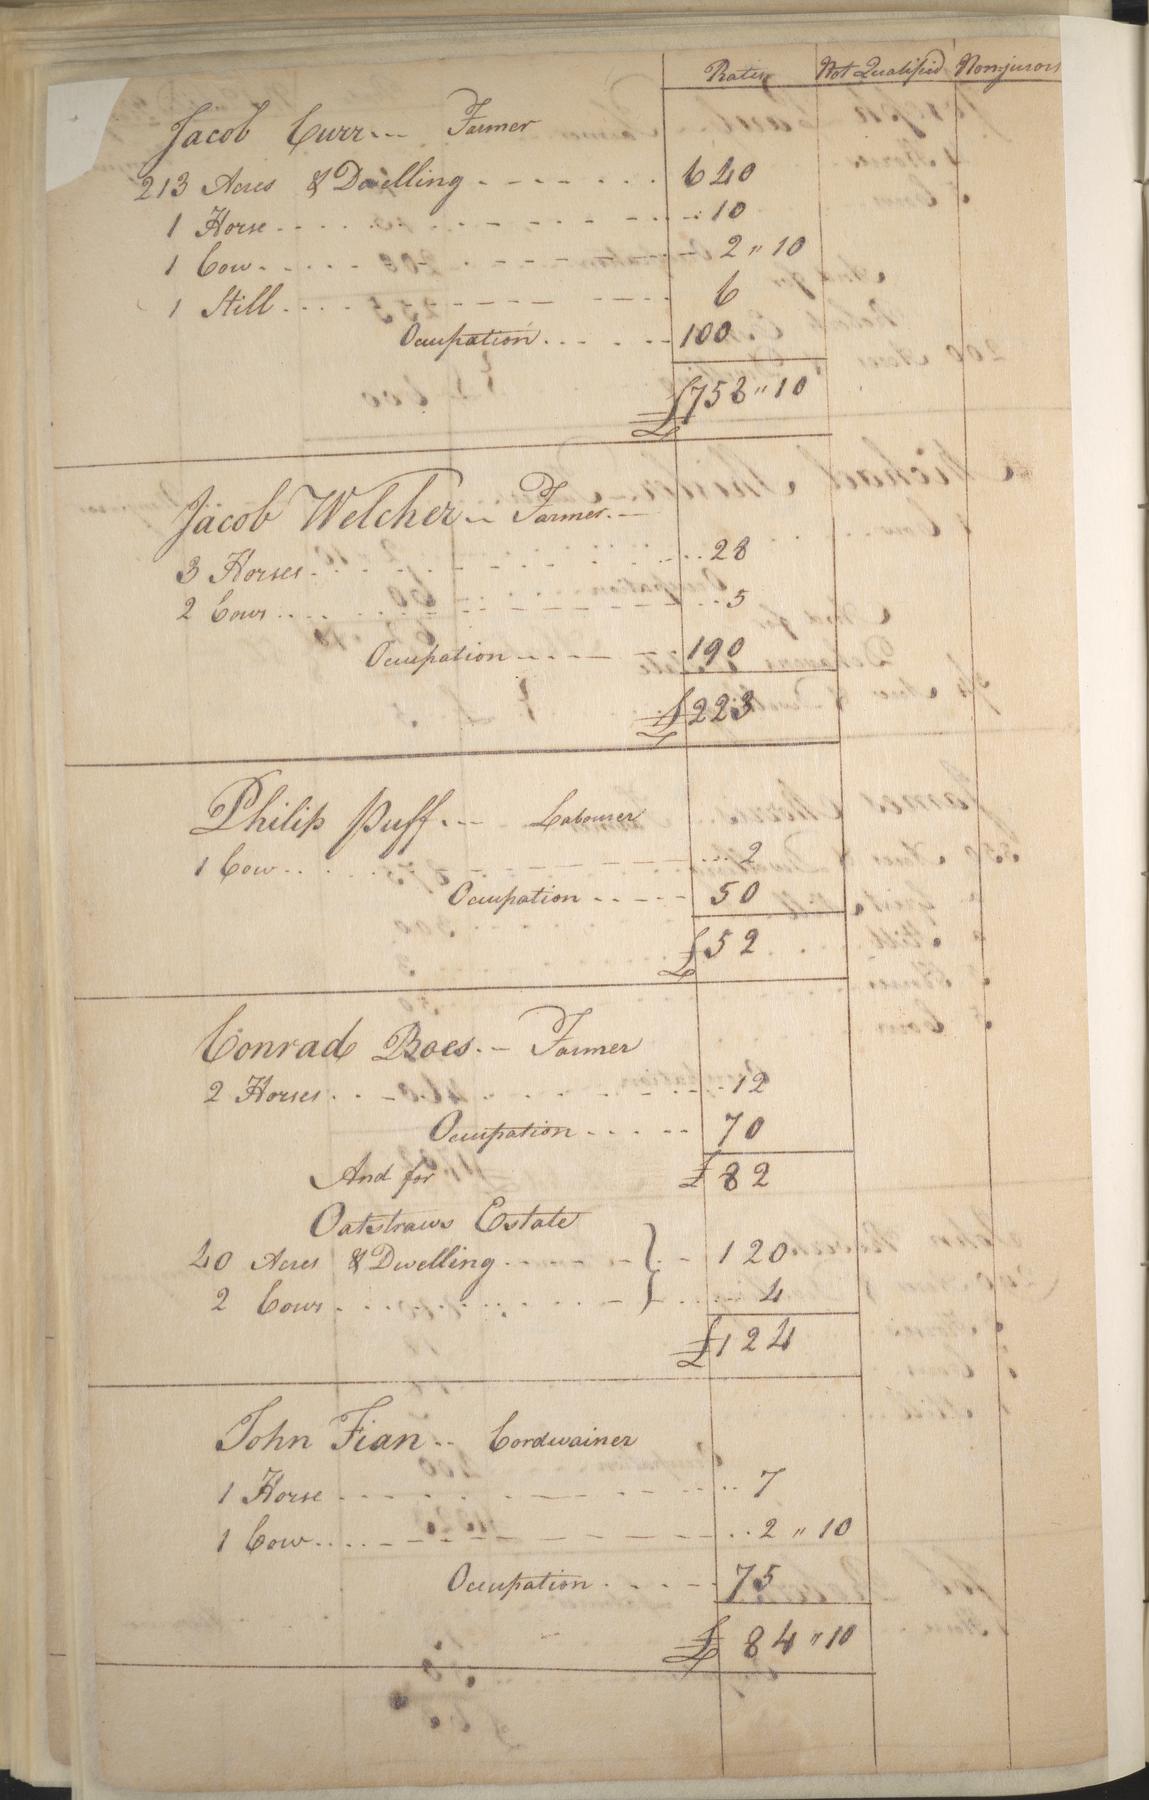 Rates Not Qualified Nonjurors
Jacob Curr Farmer
213 Acres & Dwelling 640
1 Horse 10
1 Cow 2 " 10
1 Still 6
Occupation 100
£758 " 10
Jacob Welcher Farmer
3 Horses 28
2 Cows 5
Occupation 190
£223
Philip Puff Labourer
1 Cow 2
Occupation 50
£52
Conrad Boes Farmer
2 Horses 12
Occupation 70
And for £82
Oatstraws Estate
40 Acres & Dwelling 120
2 Cows 4
£124
John Fian Cordwainer
1 Horse 7
1 Cow 2 " 10
Occupation 75
£ 84 " 10